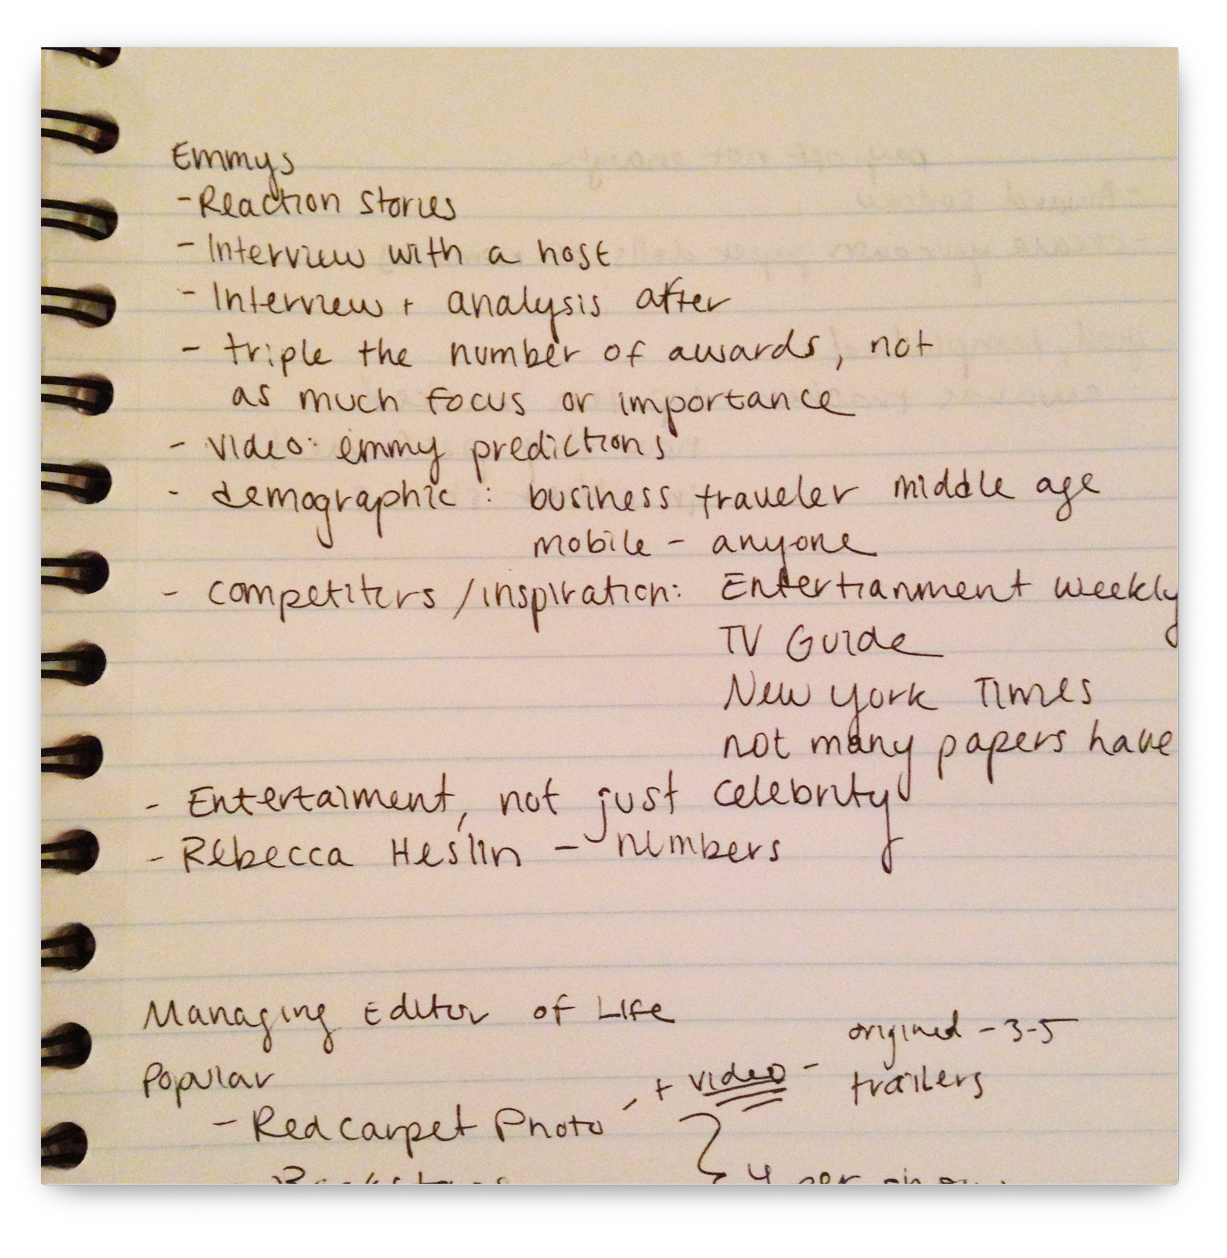 Emmys
-Reaction Stories
- Interview with a host
- Interview + analysis after
- triple the number of awards, not
as much focus or importance
- video: emmy predictions
- demographic: business traveler middle age
mobile - anyone
- competiters /inspiration: Entertianment weekly
TV Guide
New York Times
not many papers have
- Entertaiment, not just celebrity
- Rebecca Heslin - numbers
Managing Editor of Life
Popular
+ video - original - 3-5
trailers
- Red carpet Photo
4 per show